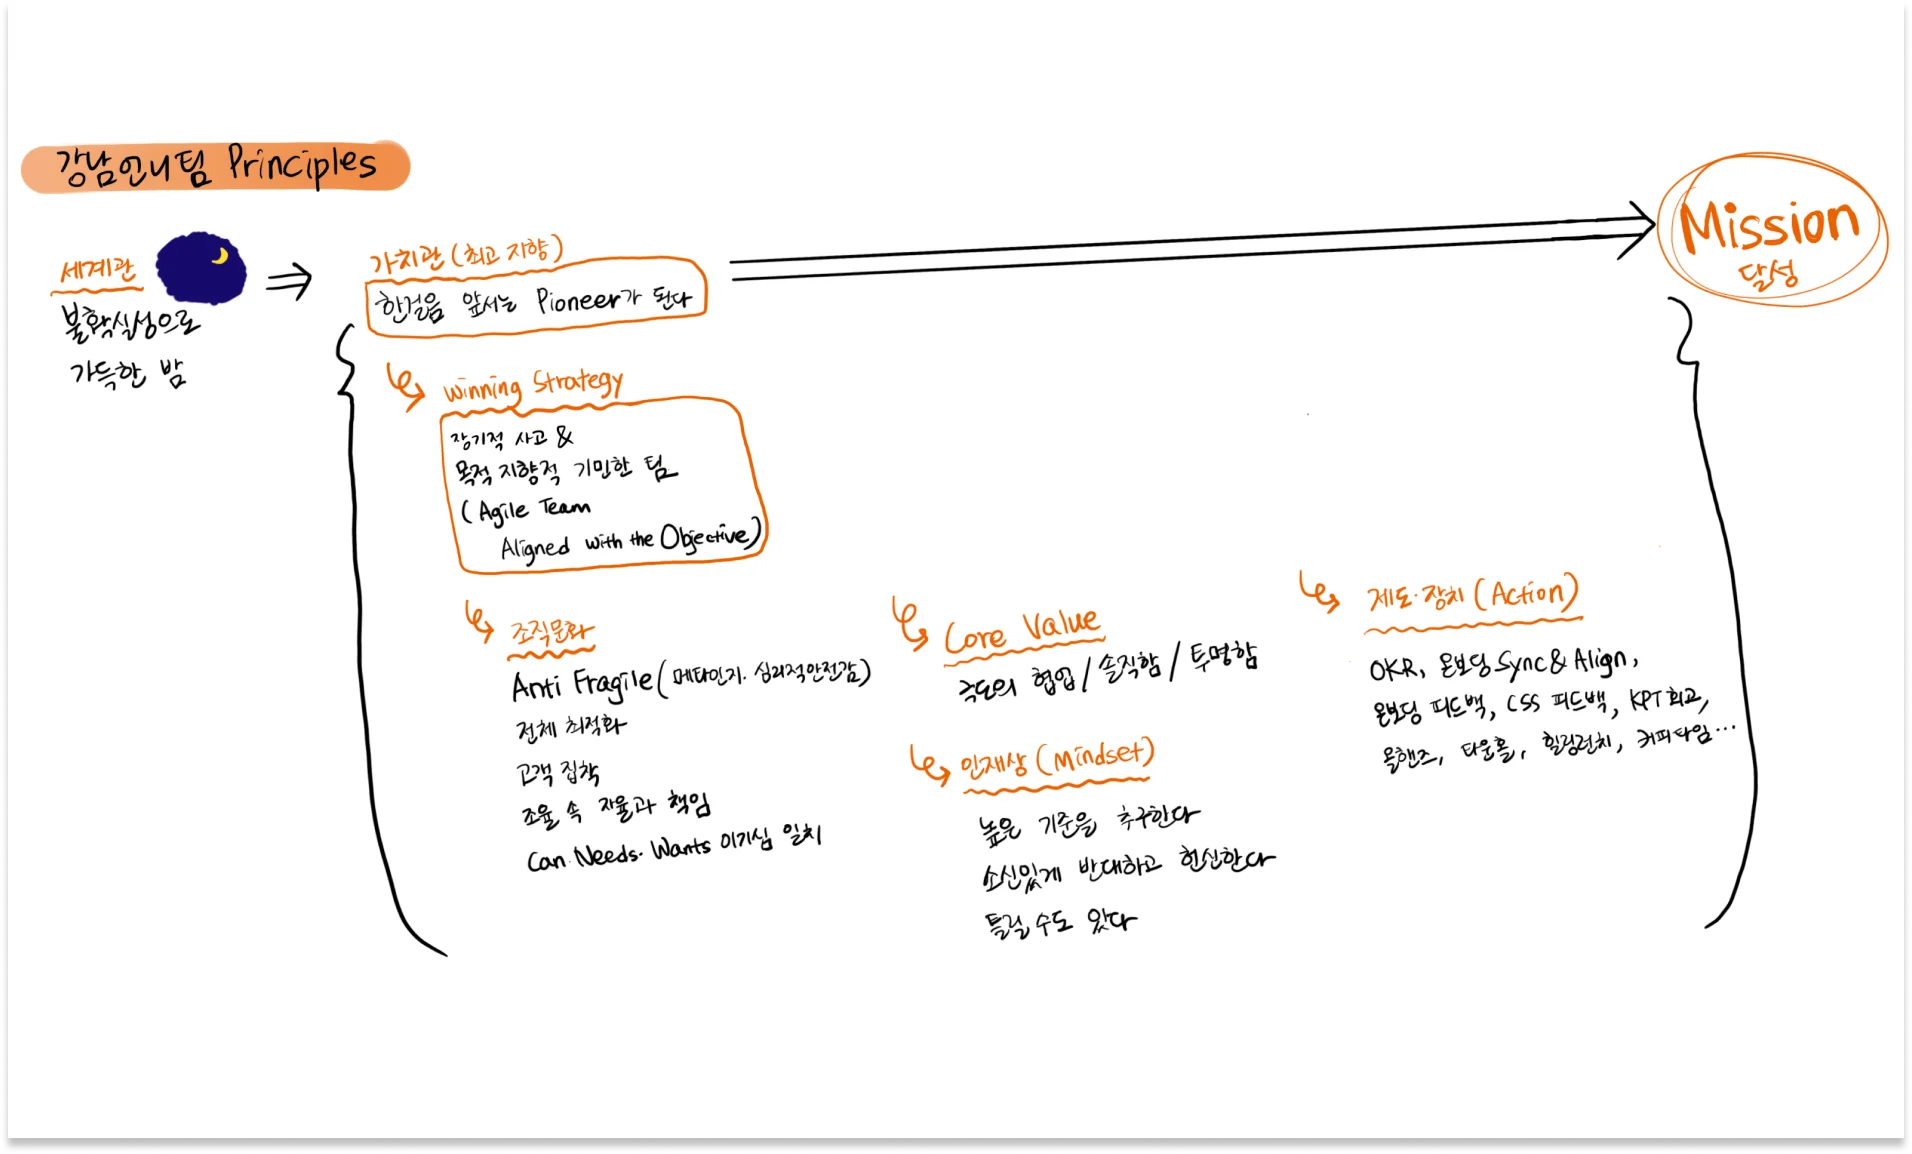 강남언니팀 Principles
세계관
불확실성으로
가득한 밤
가치관 (최고 지향)
한걸음 앞서는 Pioneer가 된다
Mission
달성
Winning Strategy
장기적 사고 &
목적 지향적 기민한 팀
(Agile Team
Aligned with the Objective)
조직문화
Anti Fragile (메타인지·심리적안전감)
전체 최적화
고객 집착
조율 속 자율과 책임
Can·Needs·Wants 이기심 일치
Core Value
극도의 협업 / 솔직함 / 투명함
인재상 (Mindset)
높은 기준을 추구한다
소신있게 반대하고 헌신한다
틀릴 수도 있다
제도·장치 (Action)
OKR, 온보딩 Sync & Align,
온보딩 피드백, CSS 피드백, KPT 회고,
올핸즈, 타운홀, 힐링런치, 커피타임...